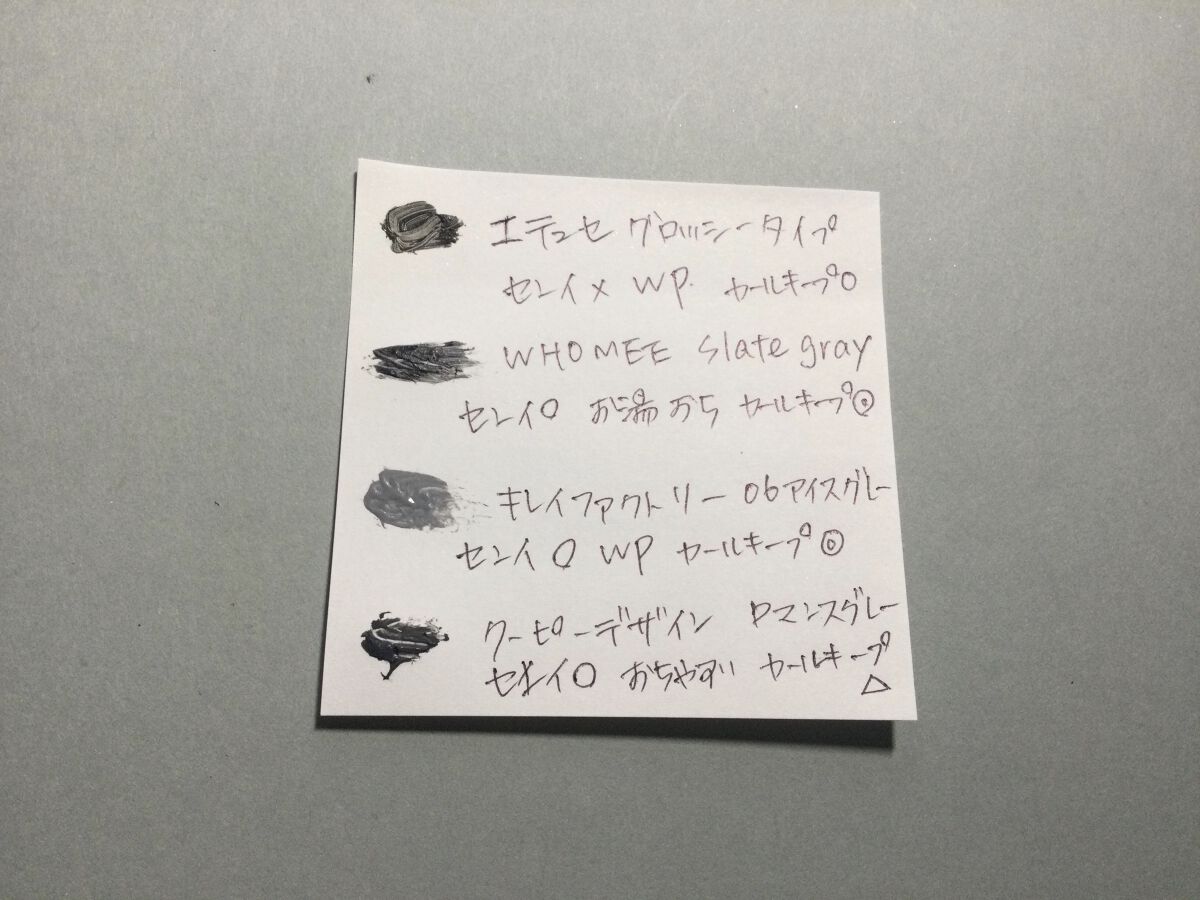 エテュセ グロッシータイプ
センイ× WP. カールキープ○
WHOMEE Slate gray
センイ○ お湯おち カールキープ◎
キレイファクトリー 06アイスグレー
センイ○ WP カールキープ◎
クーピーデザイン ロマンスグレー
センイ○ おちやすい カールキープ
△